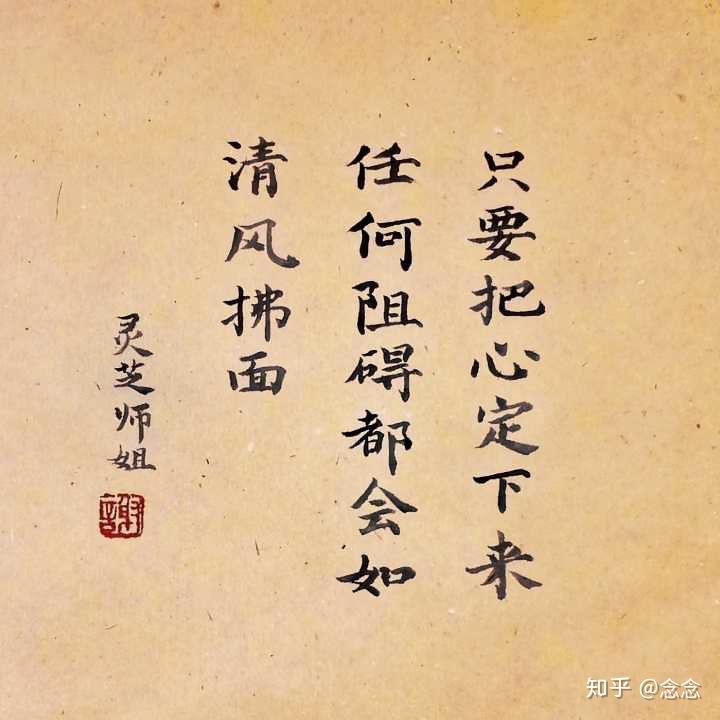 只要把心定下来
任何阻碍都会如
清风拂面
灵芝师姐
謝
知乎 @念念